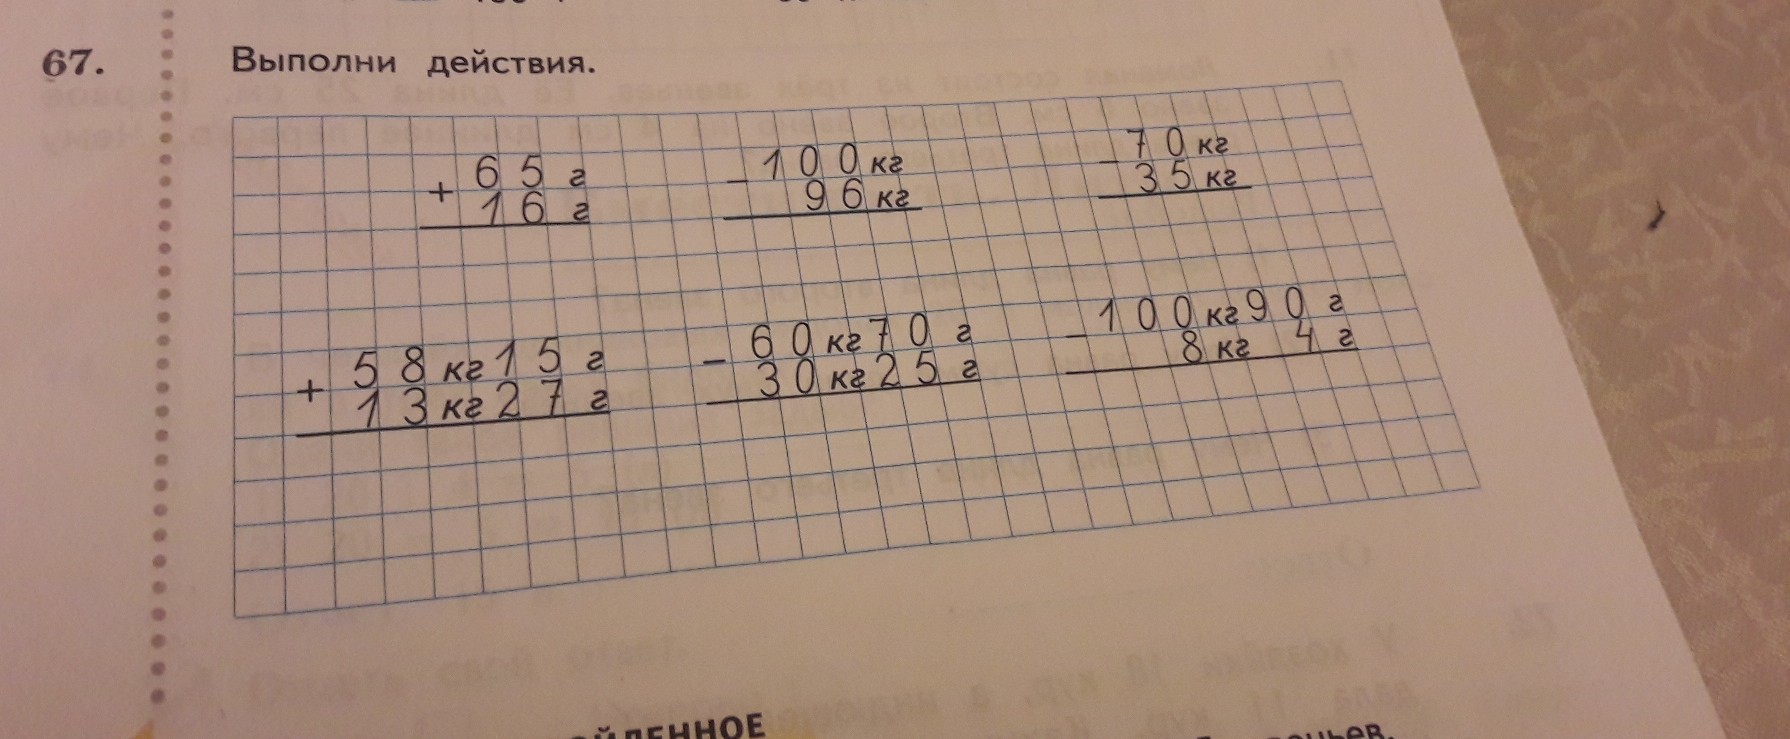 67. Выполни действия.
+ 65 г
16 г
- 100 кг
96 кг
- 70 кг
35 кг
+ 58 кг 15 г
13 кг 27 г
- 60 кг 70 г
30 кг 25 г
- 100 кг 90 г
8 кг 4 г